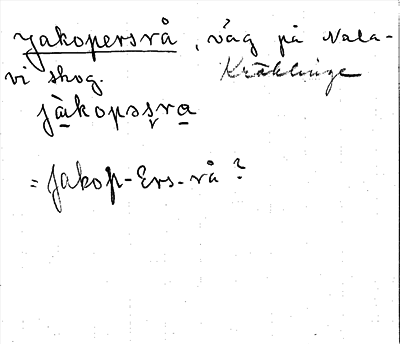 Jakopersrå, väg på Nala-
vi skog. Kräklinge
jàkopəs̬ra
= Jakop-Ers-rå?